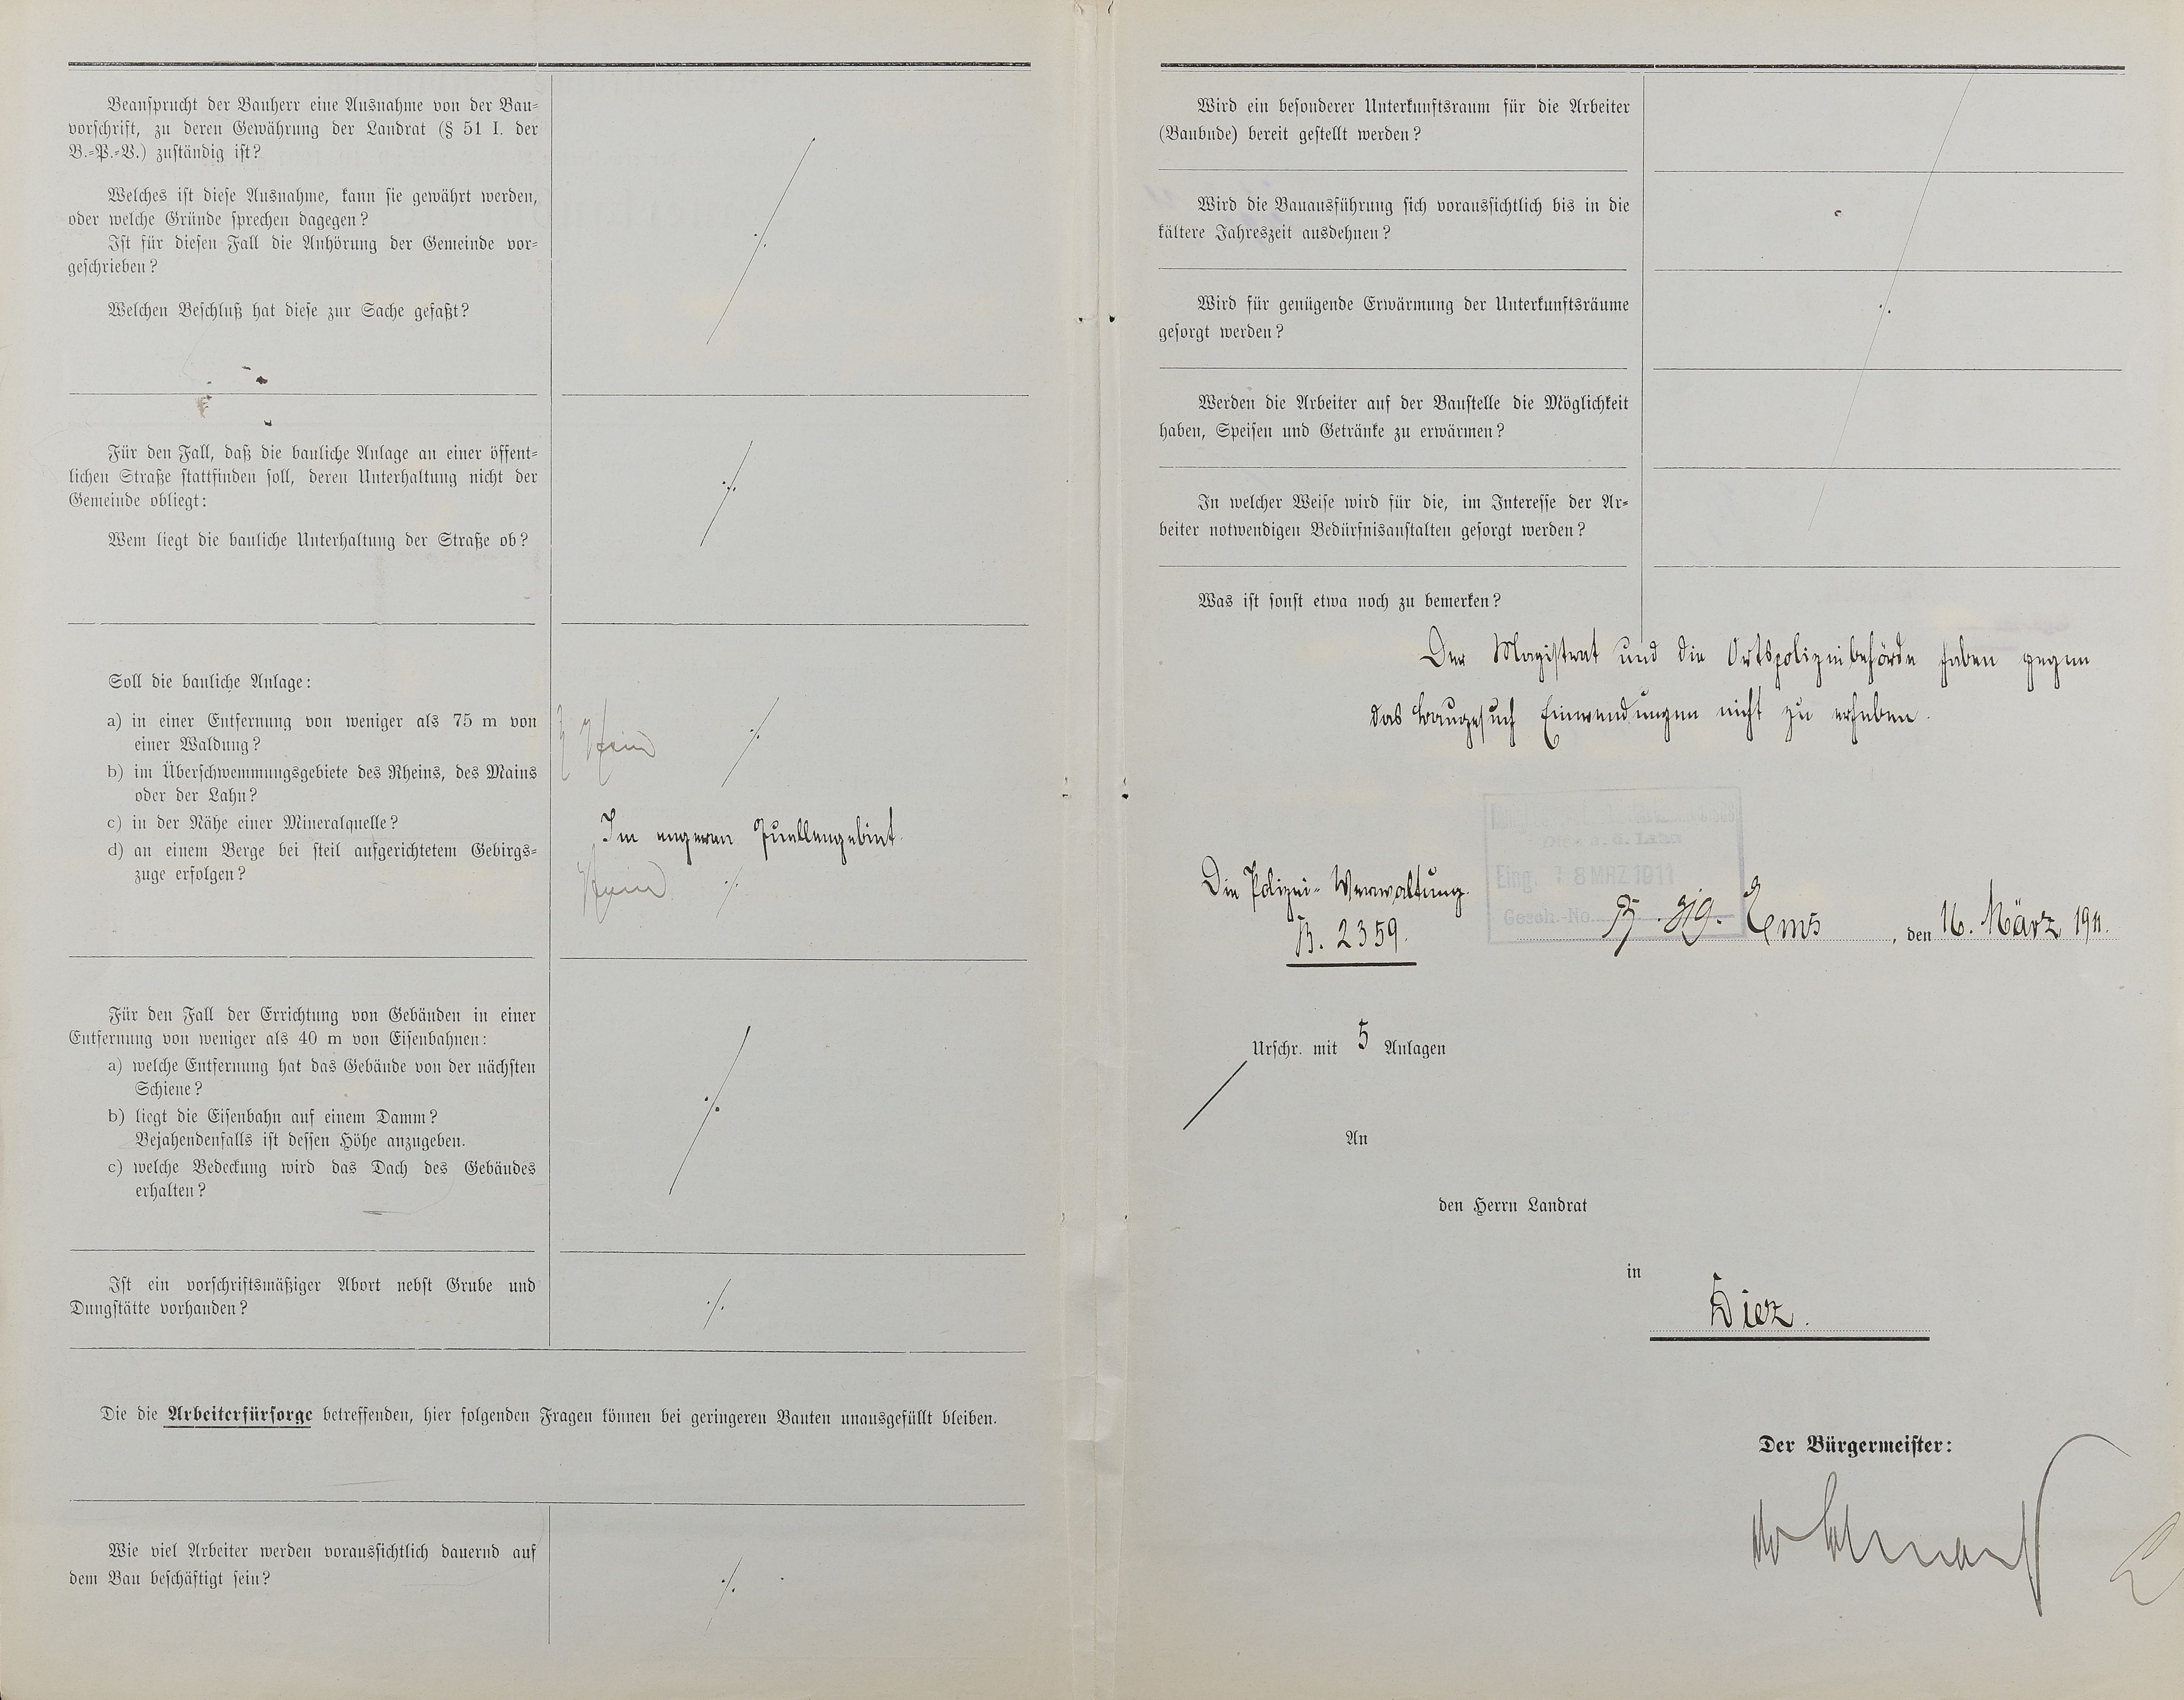 Beansprucht der Bauherr eine Ausnahme von der Bau-
vorschrift, zu deren Gewährung der Landrat (§ 51 I. der
B.-P.-V.) zuständig ist?
Welches ist diese Ausnahme, kann sie gewährt werden,
oder welche Gründe sprechen dagegen?
Ist für diesen Fall die Anhörung der Gemeinde vor-
geschrieben?
Welchen Beschluß hat diese zur Sache gefaßt?
./.
Für den Fall, daß die bauliche Anlage an einer öffent-
lichen Straße stattfinden soll, deren Unterhaltung nicht der
Gemeinde obliegt:
Wem liegt die bauliche Unterhaltung der Straße ob?
./.
Soll die bauliche Anlage:
a) in einer Entfernung von weniger als 75 m von
einer Waldung?
b) im Überschwemmungsgebiete des Rheins, des Mains
oder der Lahn?
c) in der Nähe einer Mineralquelle?
d) an einem Berge bei steil aufgerichtetem Gebirgs-
zuge erfolgen?
Nein ./.
Im engeren Quellengebiet.
Nein ./.
Für den Fall der Errichtung von Gebäuden in einer
Entfernung von weniger als 40 m von Eisenbahnen:
a) welche Entfernung hat das Gebäude von der nächsten
Schiene?
b) liegt die Eisenbahn auf einem Damm?
Bejahendenfalls ist dessen Höhe anzugeben.
c) welche Bedeckung wird das Dach des Gebäudes
erhalten?
./.
Ist ein vorschriftsmäßiger Abort nebst Grube und
Dungstätte vorhanden?
./.
Die die Arbeiterfürsorge betreffenden, hier folgenden Fragen können bei geringeren Bauten unausgefüllt bleiben.
Wie viel Arbeiter werden voraussichtlich dauernd auf
dem Bau beschäftigt sein?
./.
Wird ein besonderer Unterkunftsraum für die Arbeiter
(Baubude) bereit gestellt werden?
Wird die Bauausführung sich voraussichtlich bis in die
kältere Jahreszeit ausdehnen?
Wird für genügende Erwärmung der Unterkunftsräume
gesorgt werden?
./.
Werden die Arbeiter auf der Baustelle die Möglichkeit
haben, Speisen und Getränke zu erwärmen?
In welcher Weise wird für die, im Interesse der Ar-
beiter notwendigen Bedürfnisanstalten gesorgt werden?
Was ist sonst etwa noch zu bemerken?
Der Magistrat und die Ortspolizeibehörde haben gegen
das Baugesuch Einwendungen nicht zu erheben.
a. d. Lahn
Eing. 18 MRZ 1911
Gesch.-No.
Die Polizei-Verwaltung.
B. 2359.
Ems, den 16. März 1911.
Urschr. mit 5 Anlagen
An
den Herrn Landrat
in
Diez.
Der Bürgermeister: